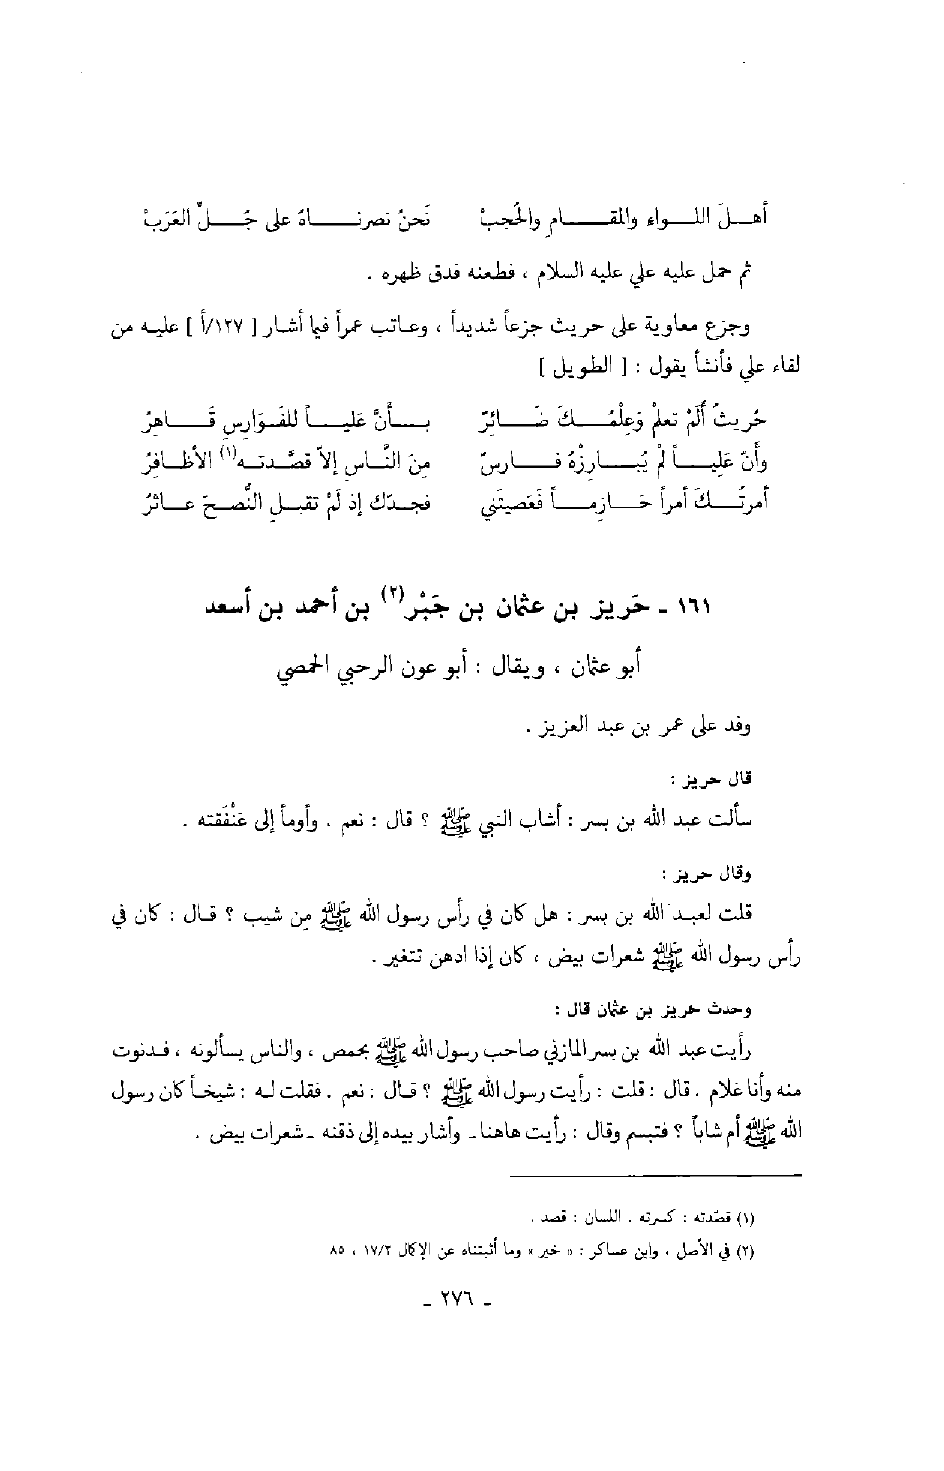 أهلَ اللواء والمقامِ والحُجبْ نَحنُ نصرناهُ على جُلِّ العَرَبْ
ثم حمل عليه علي عليه السلام ، فطعنه فدق ظهره .
وجزع معاوية على حريث جزعاً شديداً ، وعاتب عمراً فيما أشار [ ١٢٧/أ ] عليه من
لقاء علي فأنشأ يقول : [ الطويل ]
حُريثُ ألَمْ تعلمْ وَعِلْمُكَ ضَائِرٌ بأنَّ عَلياً للفَوارِسِ قَاهِرُ
وأَنَّ عَلِياً لَمْ يُبَارِزْهُ فارسٌ مِنَ النَّاسِ إلاّ قصَّدته(١) الأظافِرُ
أمرتُكَ أمراً حَازِماً فَعَصيتَنِي فجدّك إذ لَمْ تقبلِ النُّصحَ عاثرُ
١٦١ ـ حَريز بن عثمان بن جَبْر(٢) بن أحمد بن أسعد
أبو عثمان ، ويقال : أبو عون الرحبي الحمصي
وفد على عمر بن عبد العزيز .
قال حريز :
سألت عبد الله بن بسر : أشاب النبي ﷺ ؟ قال : نعم . وأومأ إلى عَنْفَقته .
وقال حريز :
قلت لعبد الله بن بسر : هل كان في رأس رسول الله ﷺ من شيب ؟ قال : كان في
رأس رسول الله ﷺ شعرات بيض ، كان إذا ادهن تتغير .
وحدث حريز بن عثمان قال :
رأيت عبد الله بن بسر المازني صاحب رسول الله ﷺ بحمص ، والناس يسألونه ، فدنوت
منه وأنا غلام . قال : قلت : رأيت رسول الله ﷺ ؟ قال : نعم . فقلت له : شيخاً كان رسول
الله ﷺ أم شاباً ؟ فتبسم وقال : رأيت هاهنا ـ وأشار بيده إلى ذقنه ـ شعرات بيض .
(١) قصّدته : كسرته . اللسان : قصد .
(٢) في الأصل ، وابن عساكر : « خير » وما أثبتناه عن الإكمال ١٧/٢ ، ٨٥
ـ ٢٧٦ ـ